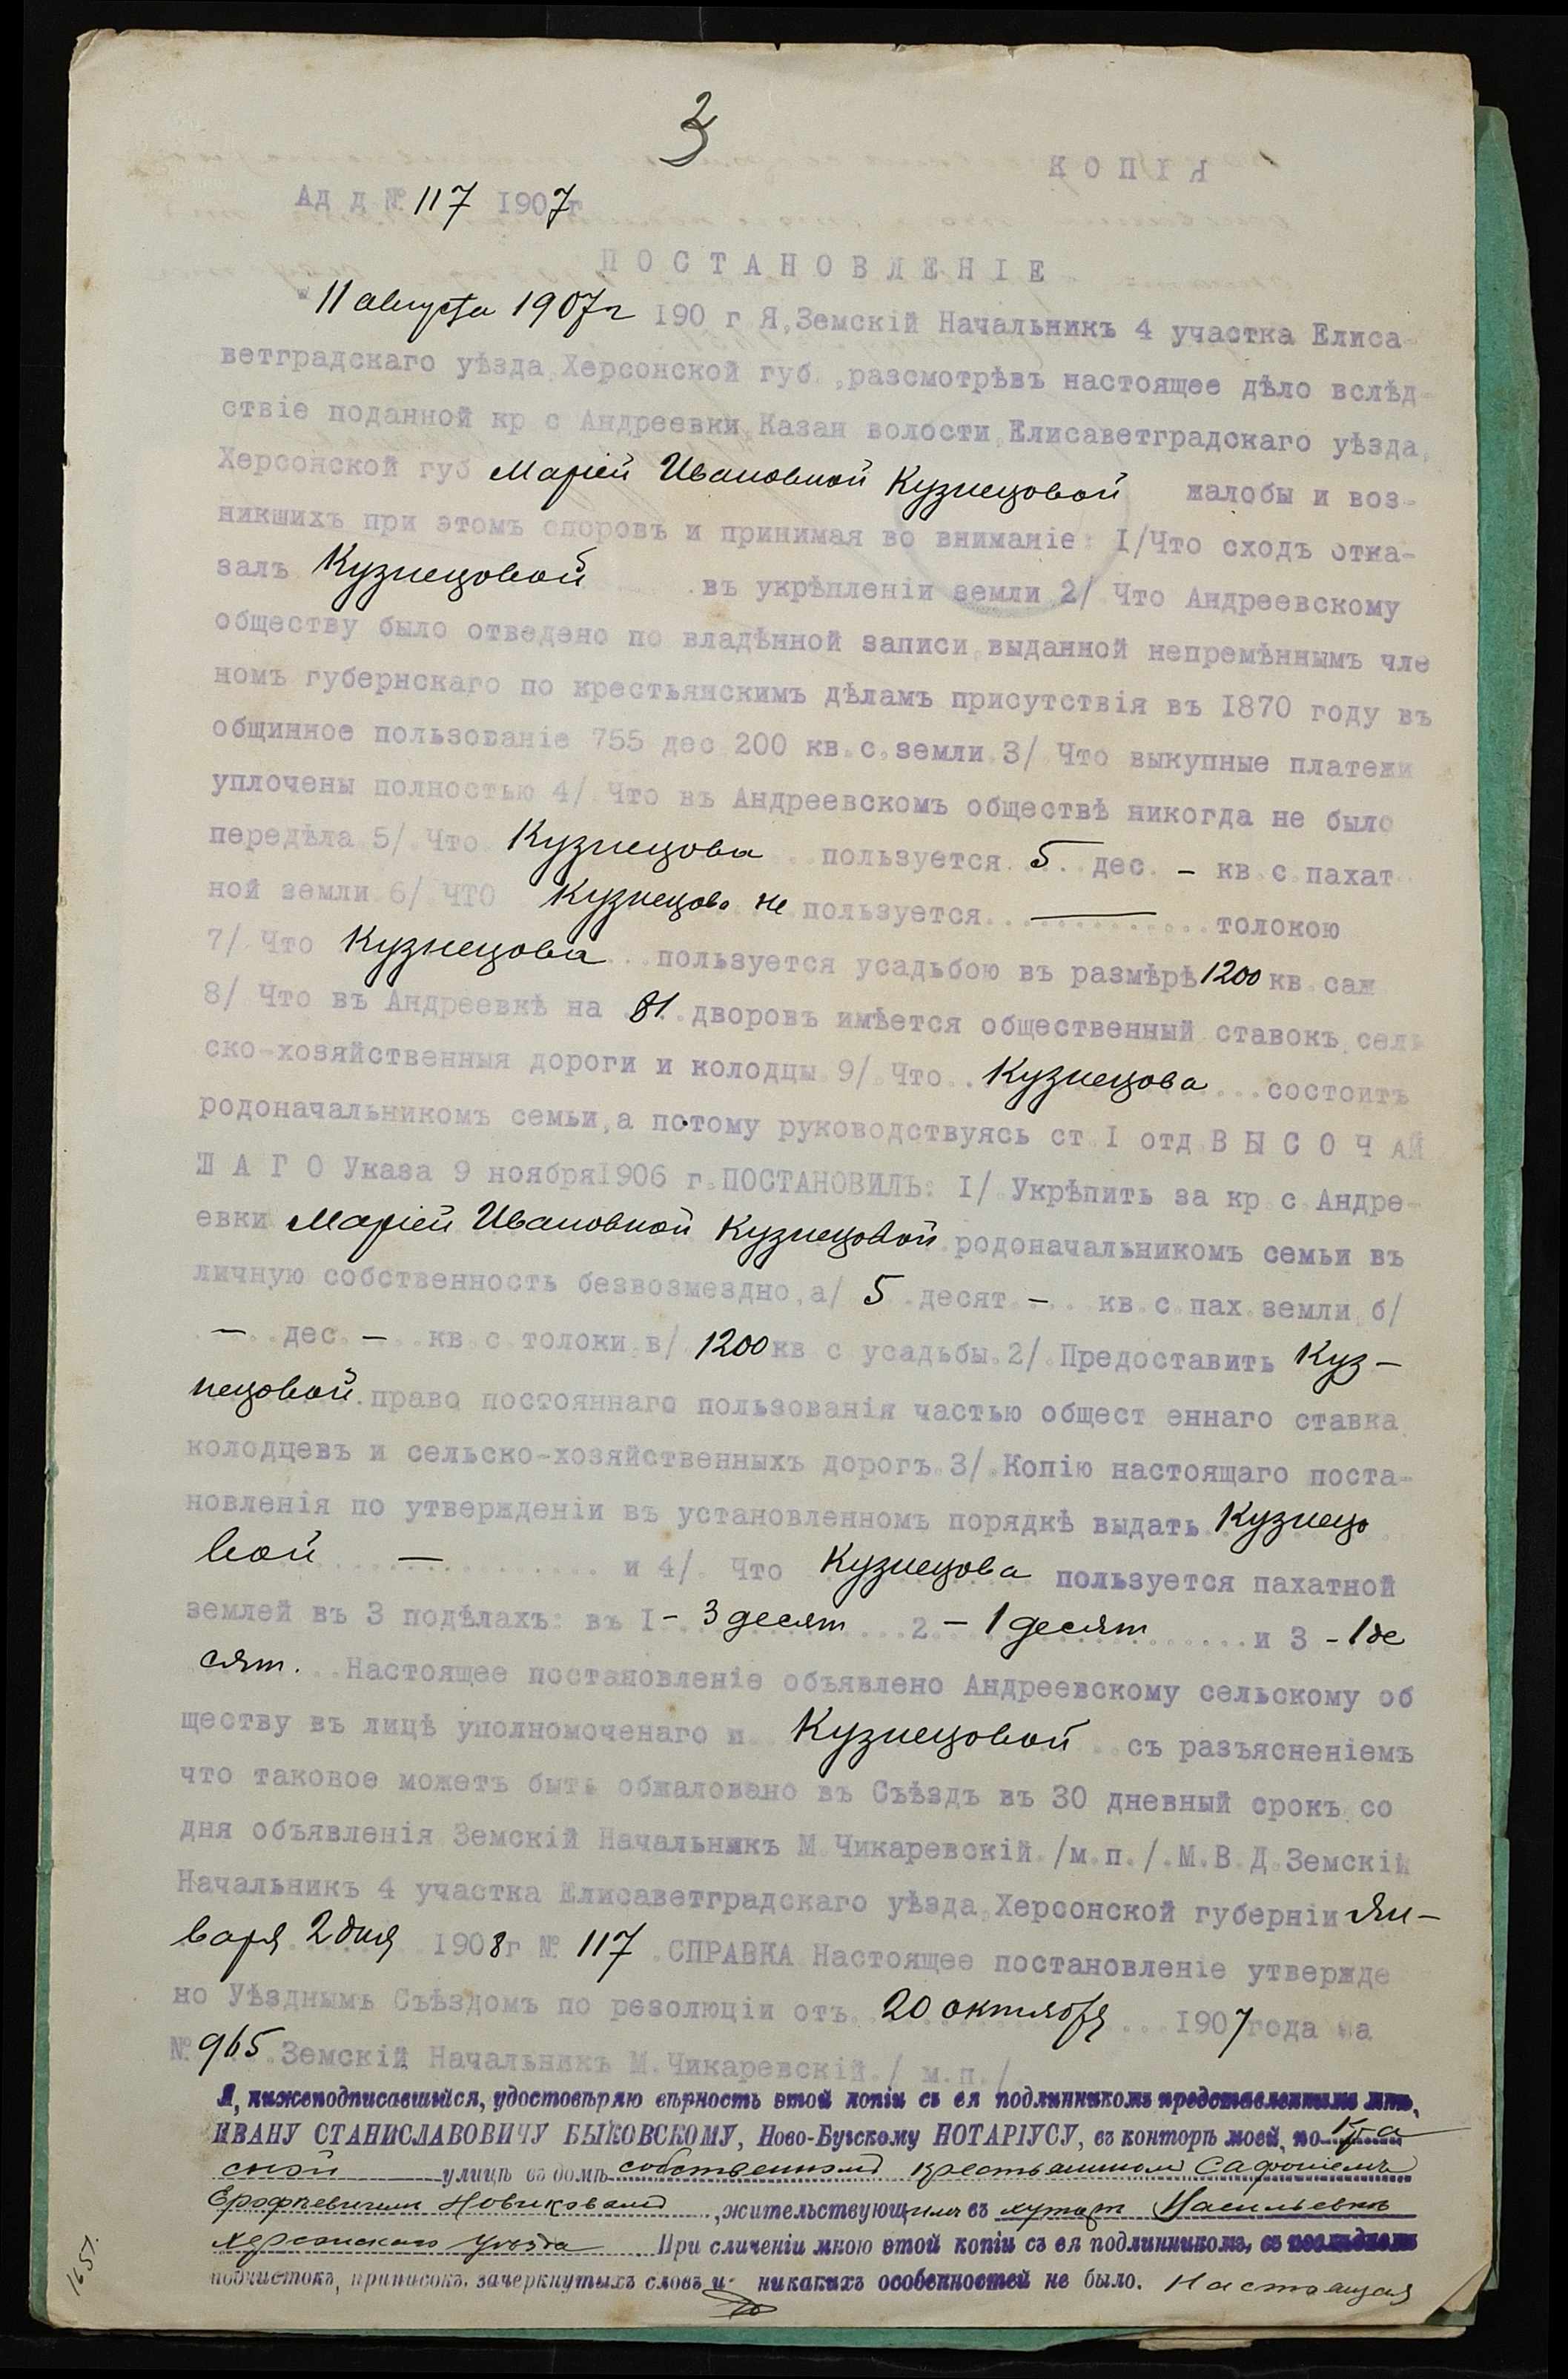 3
КОПІЯ
Ад д № 117 1907г
ПОСТАНОВЛЕНІЕ
11 августа 1907г 190 г Я,Земскій Начальникъ 4 участка Елиса-
ветградскаго уѣзда,Херсонской губ.,разсмотрѣвъ настоящее дѣло вслѣд-
ствіе поданной кр с Андреевки,Казан волости,Елисаветградскаго уѣзда,
Херсонской губ Маріей Ивановной Кузнецовой жалобы и воз-
никшихъ при этомъ споровъ и принимая во вниманіе: I/Что сходъ отка-
залъ Кузнецовой въ укрѣпленіи земли 2/ Что Андреевскому
обществу было отведено по владѣнной записи,выданной непремѣннымъ чле
номъ губернскаго по крестьянскимъ дѣламъ присутствія въ 1870 году въ
общинное пользованіе 755 дес 200 кв.с.земли.3/ Что выкупные платежи
уплочены полностью 4/ Что въ Андреевскомъ обществѣ никогда не было
передѣла 5/ Что Кузнецова пользуется 5 дес. - кв.с.пахат
ной земли 6/ ЧТО Кузнецова не пользуется ——— толокою
7/ Что Кузнецова пользуется усадьбою въ размѣрѣ 1200 кв.саж
8/ Что въ Андреевкѣ на 81 дворовъ имѣется общественный ставокъ,сель
ско-хозяйственныя дороги и колодцы 9/ Что Кузнецова состоитъ
родоначальникомъ семьи,а потому руководствуясь ст I отд В Ы С О Ч АЙ
Ш А Г О Указа 9 ноября1906 г.ПОСТАНОВИЛЪ: I/ Укрѣпить за кр с Андре-
евки Маріей Ивановной Кузнецовой родоначальникомъ семьи въ
личную собственность безвозмездно,а/ 5 десят - кв.с.пах.земли,б/
- дес - кв с толоки,в/ 1200 кв с усадьбы.2/ Предоставить Куз-
нецовой право постояннаго пользованія частью общест еннаго ставка
колодцевъ и сельско-хозяйственныхъ дорогъ.3/ Копію настоящаго поста-
новленія по утвержденіи въ установленномъ порядкѣ выдать Кузнецо
вой - и 4/ Что Кузнецова пользуется пахатной
землей въ 3 подѣлахъ: въ I - 3 десят 2 - 1 десят и 3 - 1 де
сят. Настоящее постановленіе объявлено Андреевскому сельскому об
ществу въ лицѣ уполномоченаго и Кузнецовой съ разъясненіемъ
что таковое можетъ быть обжаловано въ Съѣздъ въ 30 дневный срокъ со
дня объявленія Земскій Начальникъ М.Чикаревскій./м.п./.М.В.Д.Земскій
Начальникъ 4 участка Елисаветградскаго уѣзда,Херсонской губерніи Ян-
варя 2 дня 1908г № 117 .СПРАВКА Настоящее постановленіе утвержде
но Уѣзднымъ Съѣздомъ по резолюціи отъ 20 октября 1907 года за
№ 965 Земскій Начальникъ М.Чикаревскій./ м.п./
Я, нижеподписавшыйся, удостовѣряю вѣрность этой копіи съ ея подлинникомъ представленнымъ мнѣ,
ИВАНУ СТАНИСЛАВОВИЧУ БЫКОВСКОМУ, Ново-Бугскому НОТАРІУСУ, въ конторѣ моей, по Кра
сной улицѣ въ домѣ собственномъ крестьяниномъ Сафоніемъ
Ерофѣевичемъ Новиковымъ, жительствующимъ въ хуторѣ Васильевкѣ
Херсонскаго уѣзда При сличеніи мною этой копіи съ ея подлинникомъ, въ послѣднемъ
подчистокъ, приписокъ. зачеркнутыхъ словъ и никакихъ особенностей не было. Настоящая